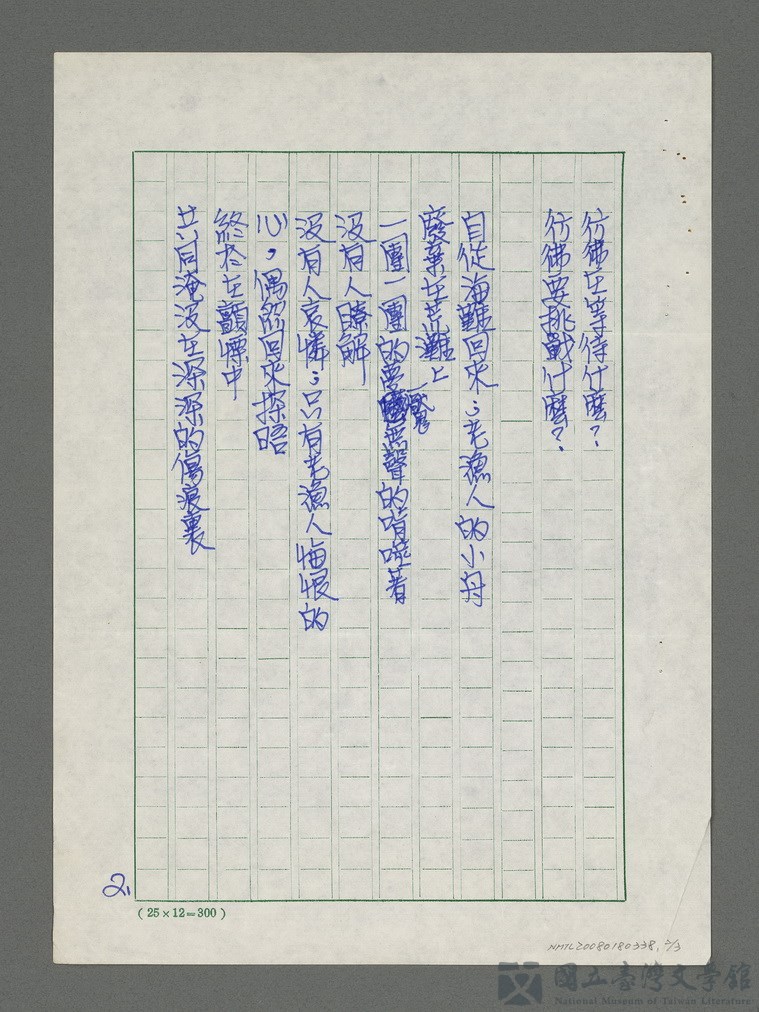 彷彿在等待什麼？
彷彿要挑戰什麼？
自從海難回來；老漁人的小舟
廢棄在荒灘上
一團一團的夢魘無聲的啃噬著
沒有人瞭解
沒有人哀憐；只有老漁人悔恨的
心，偶然回來探晤
終於在顫慄中
共同淹沒在深深的傷痕裏
2.
(25×12=300)
NMTL20080180338, 2/3
國立臺灣文學館
National Museum of Taiwan Literature